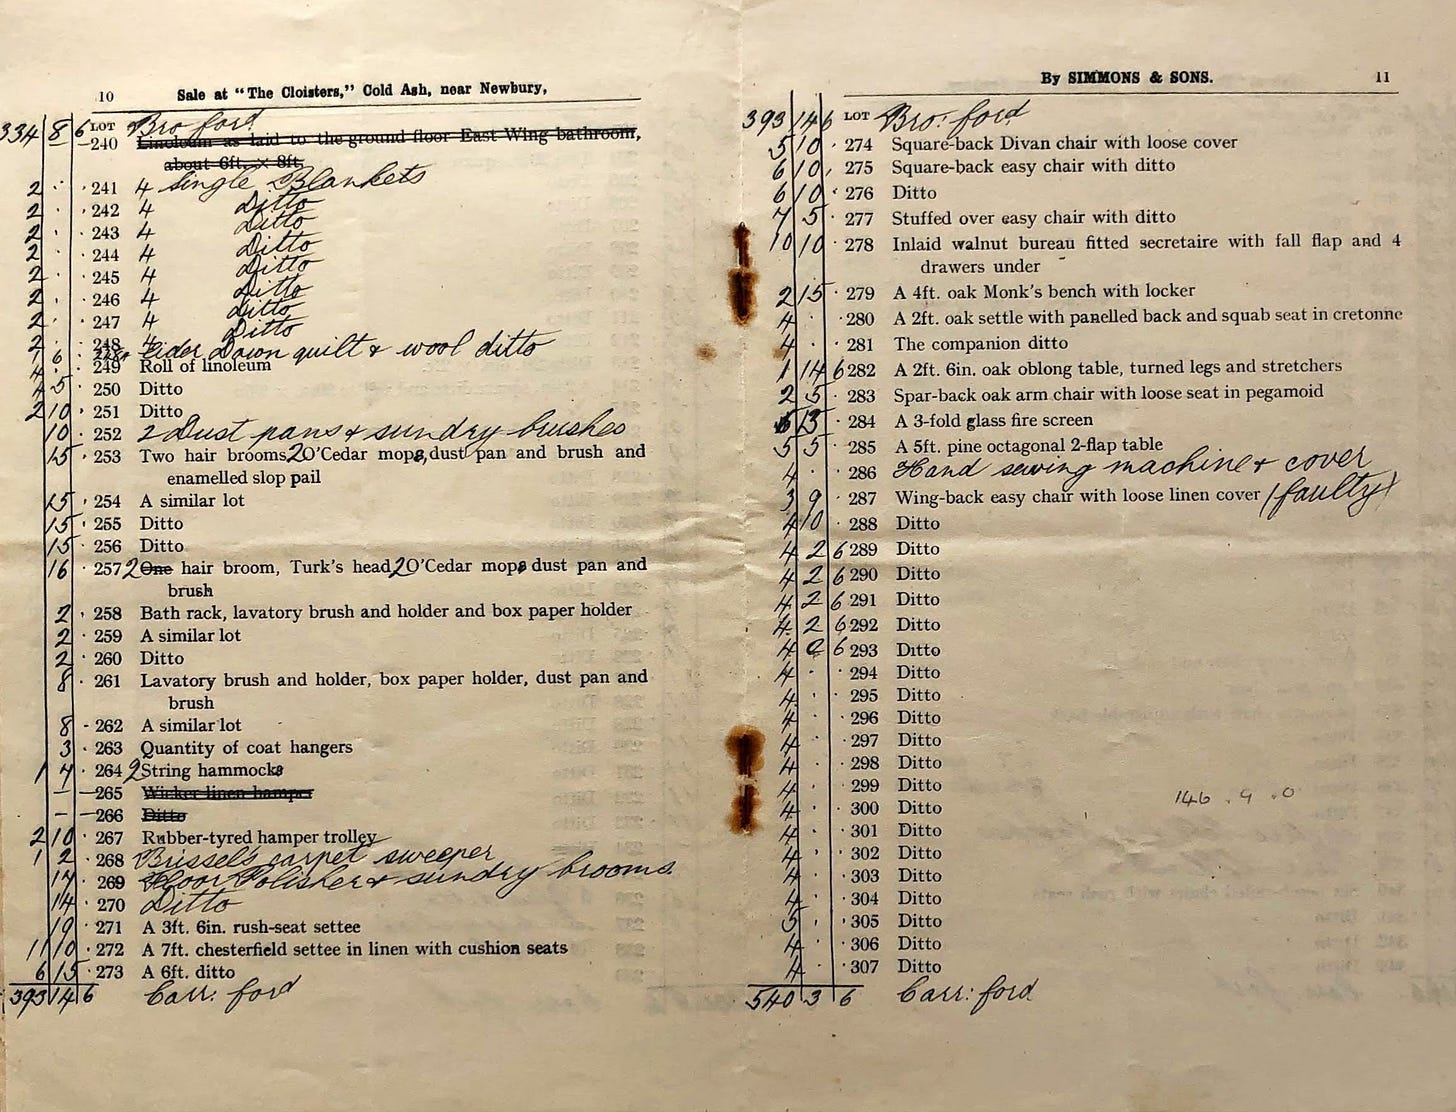 10 Sale at "The Cloisters," Cold Ash, near Newbury,
334 8 6 LOT Bro ford
240 Linoleum as laid to the ground floor East Wing bathroom,
about 6ft. × 8ft.
2 · · 241 4 Single Blankets
2 · · 242 4 Ditto
2 · · 243 4 Ditto
2 · · 244 4 Ditto
2 · · 245 4 Ditto
2 · · 246 4 Ditto
2 · · 247 4 Ditto
2 · · 248 4 Ditto
1 6 · 248a Eider Down quilt & wool ditto
4 · · 249 Roll of linoleum
4 5 · 250 Ditto
2 10 · 251 Ditto
10 · 252 2 Dust pans & sundry brushes
15 · 253 Two hair brooms 2 O'Cedar mops, dust pan and brush and
enamelled slop pail
15 · 254 A similar lot
15 · 255 Ditto
15 · 256 Ditto
16 · 257 2 One hair broom, Turk's head 2 O'Cedar mops dust pan and
brush
2 · 258 Bath rack, lavatory brush and holder and box paper holder
2 · 259 A similar lot
2 · 260 Ditto
8 · 261 Lavatory brush and holder, box paper holder, dust pan and
brush
8 - 262 A similar lot
3 · 263 Quantity of coat hangers
1 4 · 264 2 String hammocks
– – 265 Wicker linen hamper
– – 266 Ditto
2 10 · 267 Rubber-tyred hamper trolley
1 2 · 268 Brussels carpet sweeper
17 · 269 Floor Polisher & sundry brooms
14 · 270 Ditto
19 · 271 A 3ft. 6in. rush-seat settee
11 10 · 272 A 7ft. chesterfield settee in linen with cushion seats
6 15 · 273 A 6ft. ditto
393 14 6 Carr: ford
By SIMMONS & SONS. 11
393 14 6 LOT Bro: ford
5 10 · 274 Square-back Divan chair with loose cover
6 10 · 275 Square-back easy chair with ditto
6 10 · 276 Ditto
7 5 · 277 Stuffed over easy chair with ditto
10 10 · 278 Inlaid walnut bureau fitted secretaire with fall flap and 4
drawers under
2 15 · 279 A 4ft. oak Monk's bench with locker
4 · · 280 A 2ft. oak settle with panelled back and squab seat in cretonne
4 · · 281 The companion ditto
1 14 6 282 A 2ft. 6in. oak oblong table, turned legs and stretchers
2 5 · 283 Spar-back oak arm chair with loose seat in pegamoid
13 · 284 A 3-fold glass fire screen
5 5 · 285 A 5ft. pine octagonal 2-flap table
4 · · 286 Hand sewing machine & cover
3 9 · 287 Wing-back easy chair with loose linen cover (faulty)
4 10 · 288 Ditto
4 2 6 289 Ditto
4 2 6 290 Ditto
4 2 6 291 Ditto
4 2 6 292 Ditto
4 2 6 293 Ditto
4 · · 294 Ditto
4 · · 295 Ditto
4 · · 296 Ditto
4 · · 297 Ditto
4 · · 298 Ditto
4 · · 299 Ditto
4 · · 300 Ditto
4 · · 301 Ditto
4 · · 302 Ditto
4 · · 303 Ditto
4 · · 304 Ditto
5 · · 305 Ditto
4 · · 306 Ditto
4 · · 307 Ditto
146 . 9 . 0
540 3 6 Carr: ford